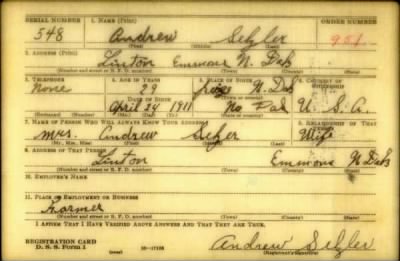 SERIAL NUMBER 1. NAME (Print) ORDER NUMBER
548 Andrew Selzler 951
(First) (Middle) (Last)
2. ADDRESS (Print)
Linton Emmons N. Dak
(Number and street or R. F. D. number) (Town) (County) (State)
3. TELEPHONE 4. AGE IN YEARS 5. PLACE OF BIRTH 6. COUNTRY OF CITIZENSHIP
None 29 N. Dak
DATE OF BIRTH
April 24 1911 No Dak U. S. A.
(Exchange) (Number) (Mo.) (Day) (Yr.) (State or country)
7. NAME OF PERSON WHO WILL ALWAYS KNOW YOUR ADDRESS 8. RELATIONSHIP OF THAT PERSON
Mrs. Andrew Wife
(Mr., Mrs., Miss) (First) (Middle) (Last)
9. ADDRESS OF THAT PERSON
Linton Emmons N Dak
(Number and street or R. F. D. number) (Town) (County) (State)
10. EMPLOYER'S NAME
11. PLACE OF EMPLOYMENT OR BUSINESS
Farmer
(Number and street or R. F. D. number) (Town) (County) (State)
I AFFIRM THAT I HAVE VERIFIED ABOVE ANSWERS AND THAT THEY ARE TRUE.
REGISTRATION CARD
D. S. S. Form 1 (over) Andrew Selzler
(Registrant's signature)